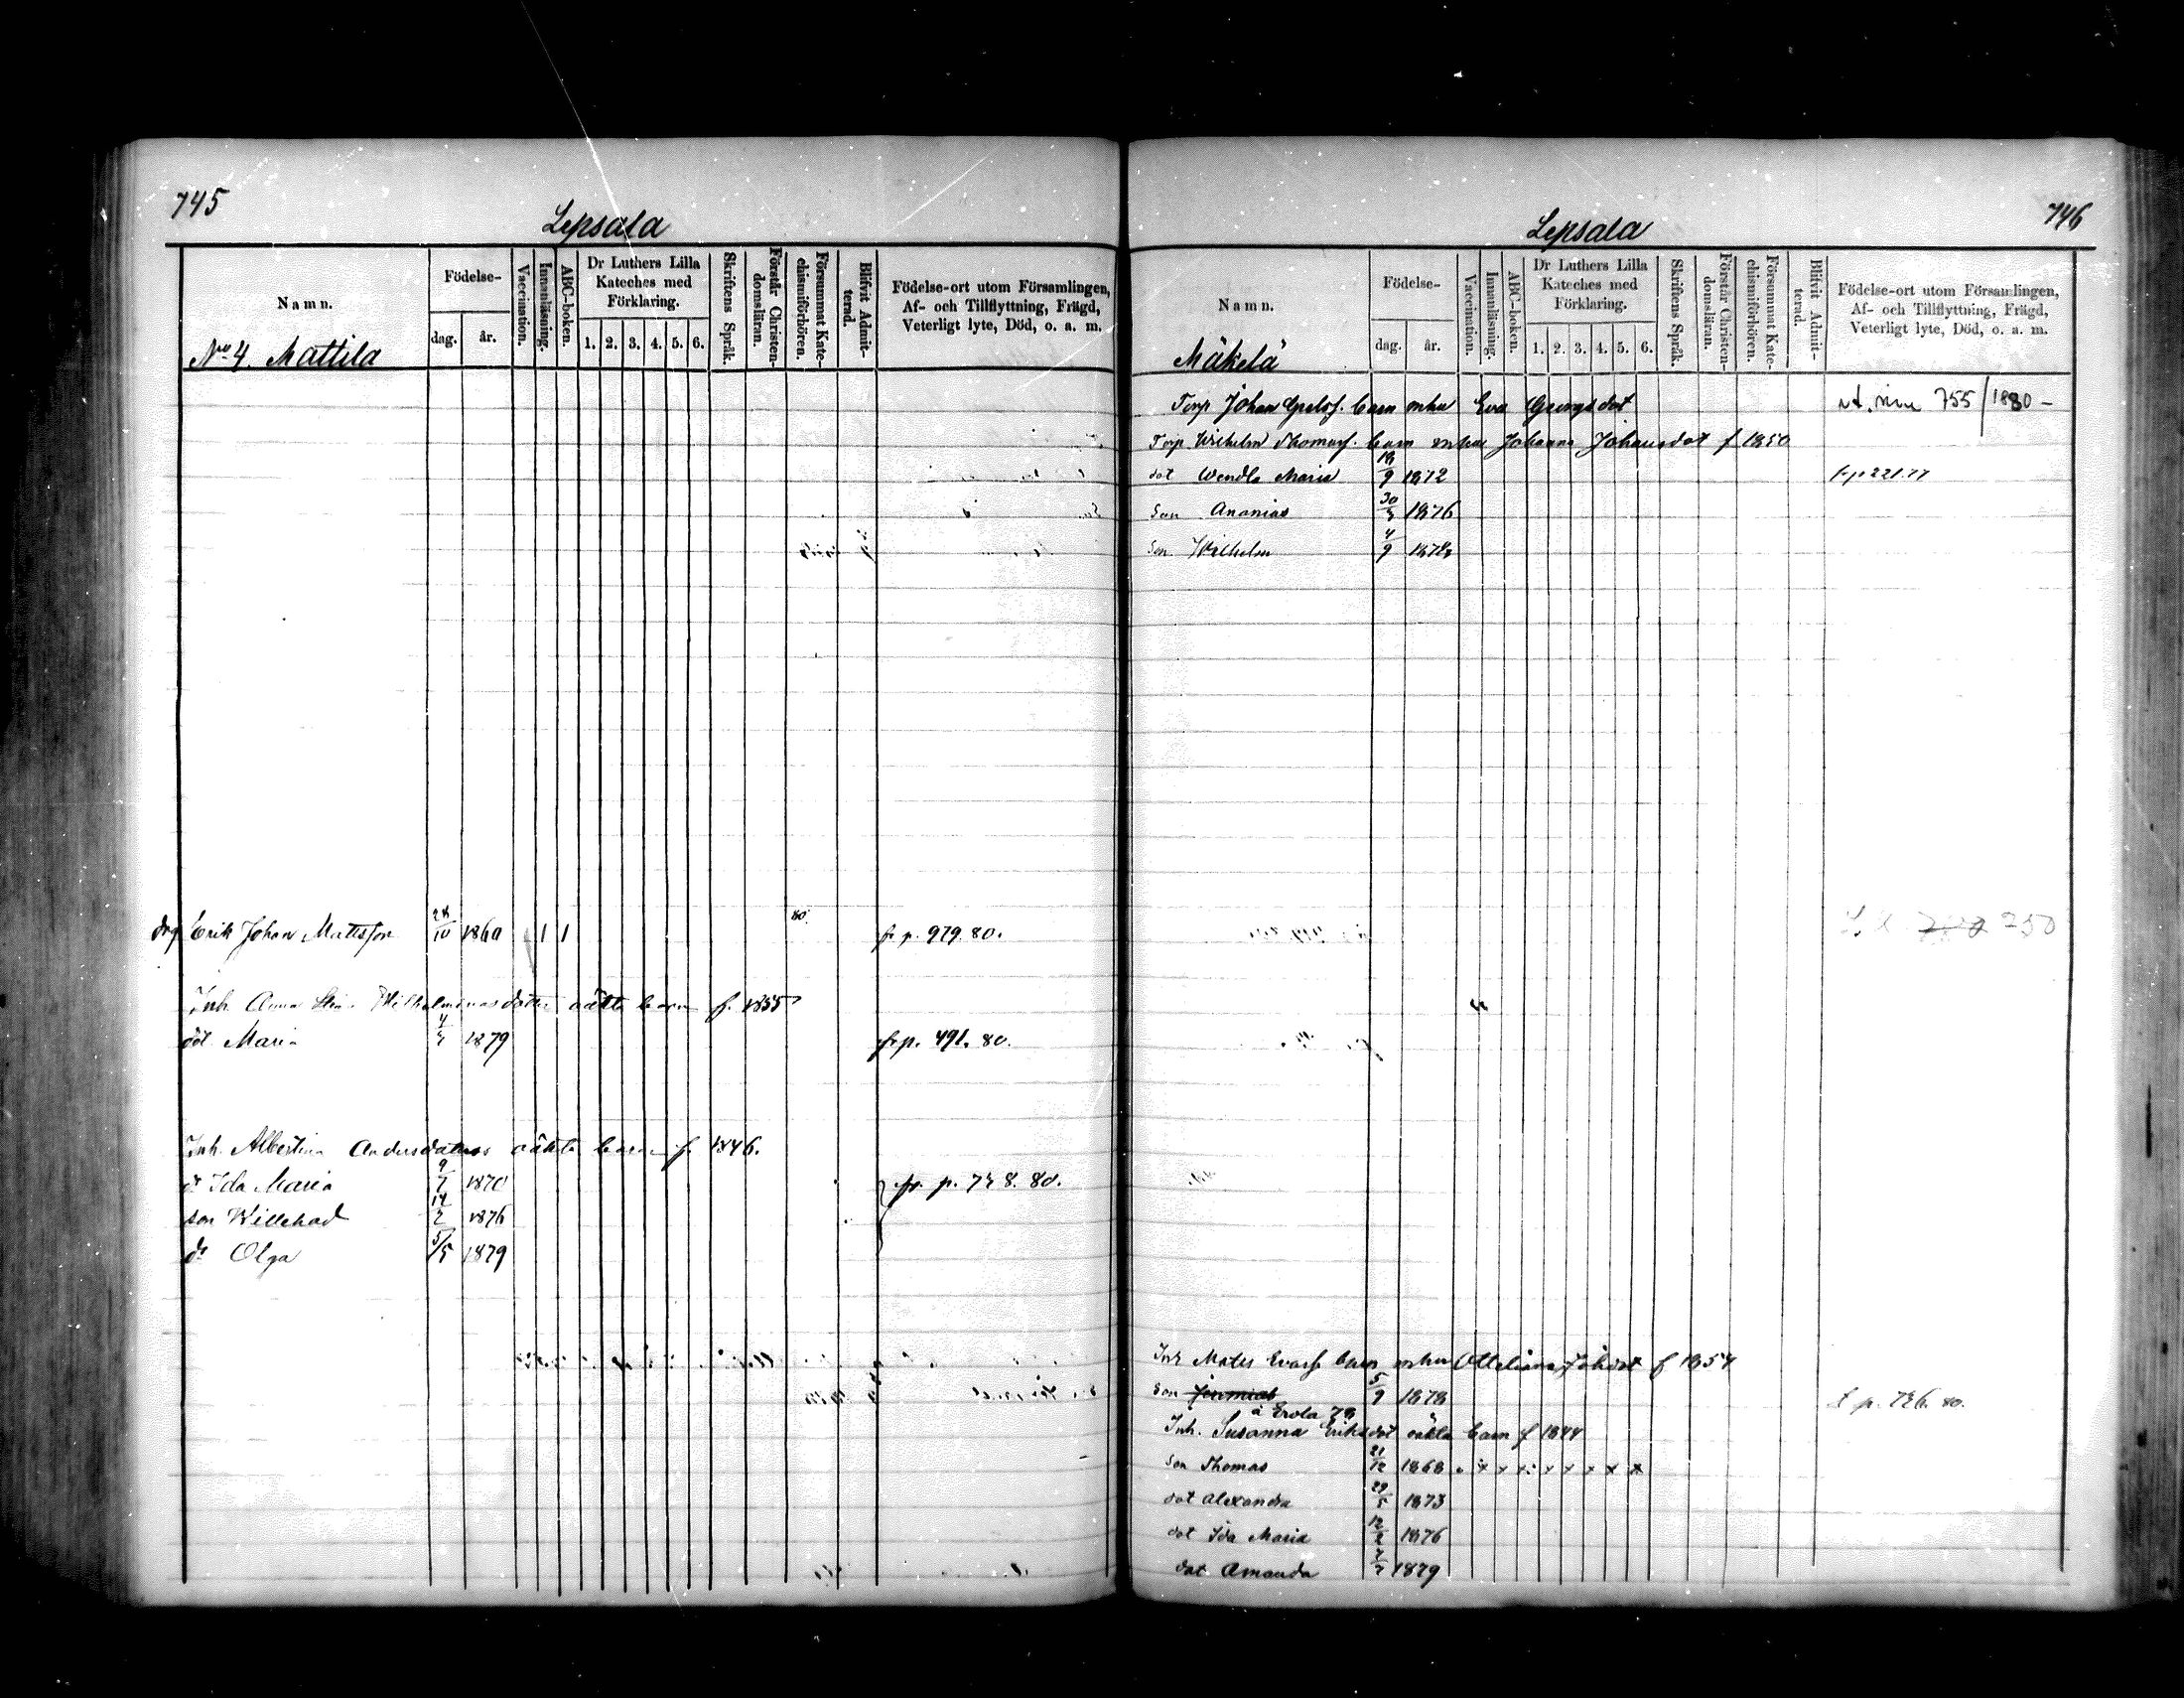 745
Lepsala
Namn.
Födelse-
dag.
år.
Vaccination.
Innanläsning.
ABC-boken.
Dr Luthers Lilla
Kateches med
Förklaring.
1. 2. 3. 4. 5. 6.
Skriftens Språk.
Förstår Christen-
domsläran.
Försummat Kate-
chismiförhören.
Blifvit Admit-
terad.
Födelse-ort utom Församlingen,
Af- och Tillflyttning, Frägd,
Veterligt lyte, Död, o. a. m.
No 4. Mattila
drg Erik Johan Mattsson 28/10 1860 1 1 80. fr p. 979. 80.
Inh Anna Stina Wilhelminasdotter oäkta barn f. 1855
dot Maria 1879 fr p. 491. 80.
Inh. Albertina Andersdotters oäkta barn f. 1846.
dr Ida Maria 9/7 1870 fr. p. 738. 80.
son Willehad 14/2 1876
dr Olga 5/5 1879
746
Lepsala
Namn.
Födelse-
dag.
år.
Vaccination.
Innanläsning.
ABC-boken.
Dr Luthers Lilla
Kateches med
Förklaring.
1. 2. 3. 4. 5. 6.
Skriftens Språk.
Förstår Christen-
domsläran.
Försummat Kate-
chismiförhören.
Blifvit Admit-
terad.
Födelse-ort utom Församlingen,
Af- och Tillflyttning, Frägd,
Veterligt lyte, Död, o. a. m.
Mäkelä
Torp Johan barn m hu Eva Georgsdot 755/1880 -
Torp. Wilhelm Thomass. barn m hu Johanna Johansdot f 1850
dot Wendla Maria 18/9 1872 fr p 221. 77
Son Ananias 30/3 1876
Son Wilhelm 4/9 1878
250
Inh Matts barn m hu Ottiliana Johdot f 1854
Son Jeremias 5/9 1878 t p. 726. 80.
a Erola 78
Inh. Susanna Eriksdot oäkta barn f 1844
Son Thomas 21/12 1868 . x x x x x x x x
dot Alexandra 29/5 1873
dot Ida Maria 12/2 1876
dot Amanda 1879